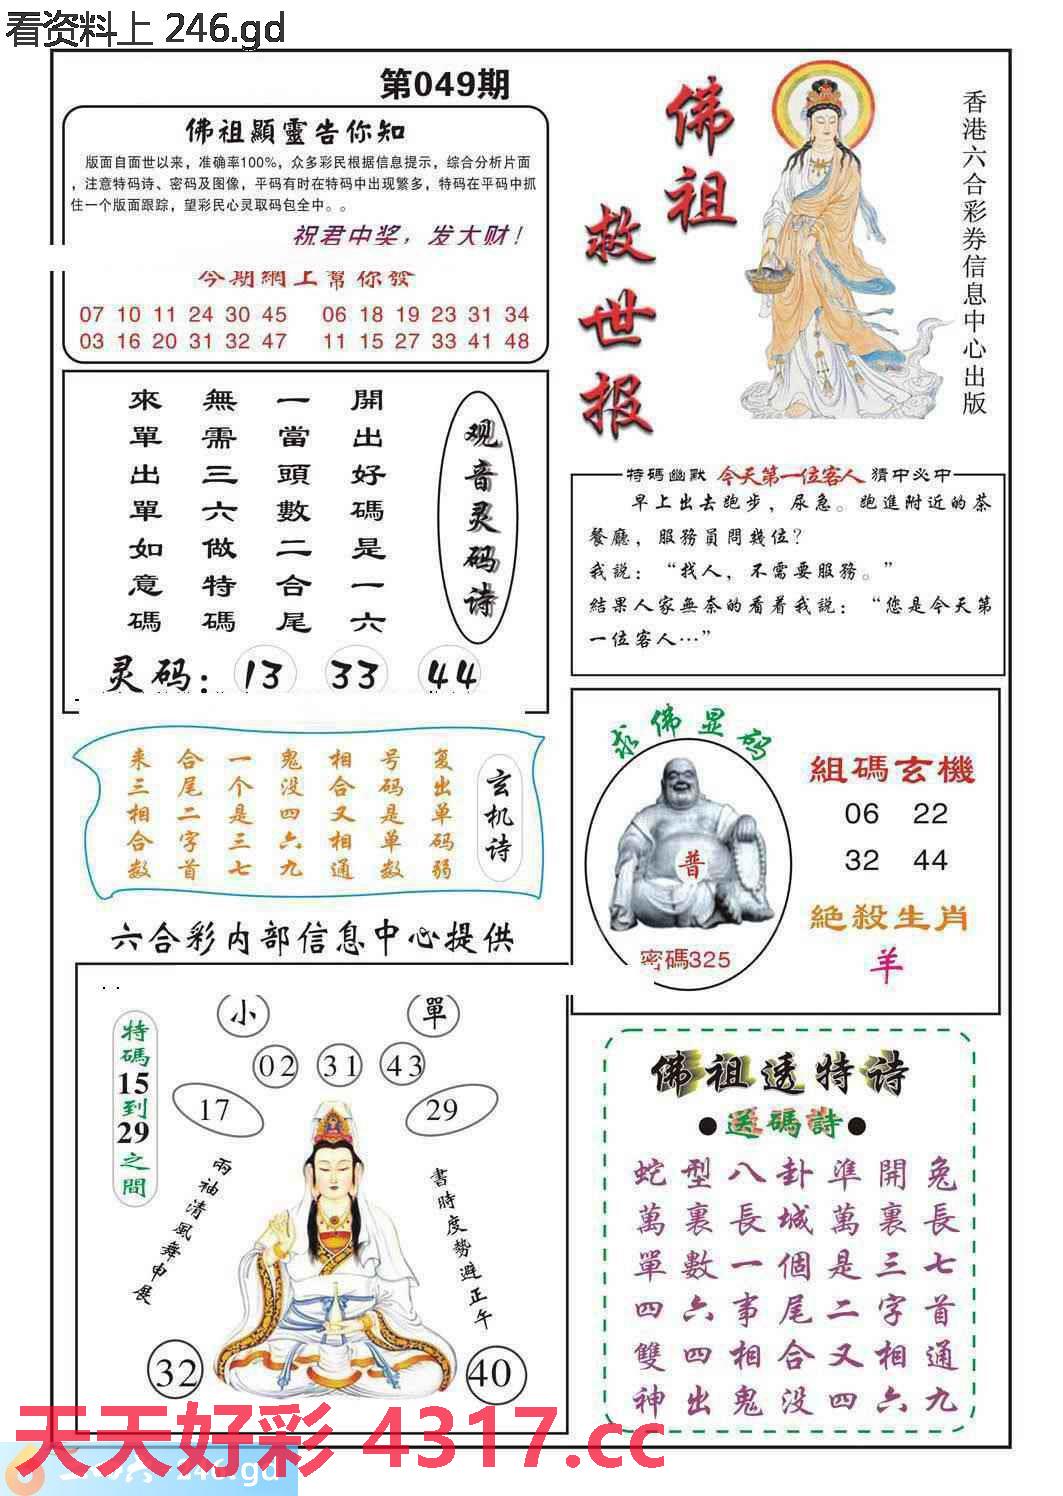 看资料上 246.gd
第049期
佛祖顯靈告你知
版面自面世以来，准确率100%，众多彩民根据信息提示，综合分析片面
，注意特码诗、密码及图像，平码有时在特码中出现繁多，特码在平码中抓
住一个版面跟踪，望彩民心灵取码包全中。。
祝君中奖，发大财！
今期網上幫你發
07 10 11 24 30 45 06 18 19 23 31 34
03 16 20 31 32 47 11 15 27 33 41 48
佛祖
救世报
香港六合彩券信息中心出版
观音灵码诗
開出好碼是一六
一當頭數二合尾
無需三六做特碼
來單出單如意碼
灵码：13 33 44
特碼幽默 今天第一位客人 猜中必中
早上出去跑步，尿急。跑進附近的茶
餐廳，服務員問幾位？
我説：“找人，不需要服務。”
結果人家無奈的看着我説：“您是今天第
一位客人…”
玄机诗
复出单码弱
号码是单数
相合又相通
鬼没四六九
一个是三七
合尾二字首
来三相合数
求佛显码
普
密碼325
組碼玄機
06 22
32 44
絕殺生肖
羊
六合彩内部信息中心提供
小 單
02 31 43
17 29
特碼15到29之間
兩袖清風舞申展
書時度勢避正午
32 40
佛祖透特诗
●送碼詩●
蛇型八卦準開兔
萬裏長城萬裏長
單數一個是三七
四六事尾二字首
雙四相合又相通
神出鬼没四六九
天天好彩 4317.cc
246.gd